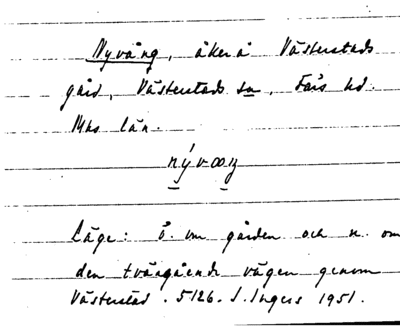 Nyvång, åker å Västerstads
gård, Västerstads sn, Färs hd.
Mhs län.
nývoŋ
Läge: ö. om gården och n. om
den tvärgående vägen genom
Västerstad. 5126. I. Ingers 1951.